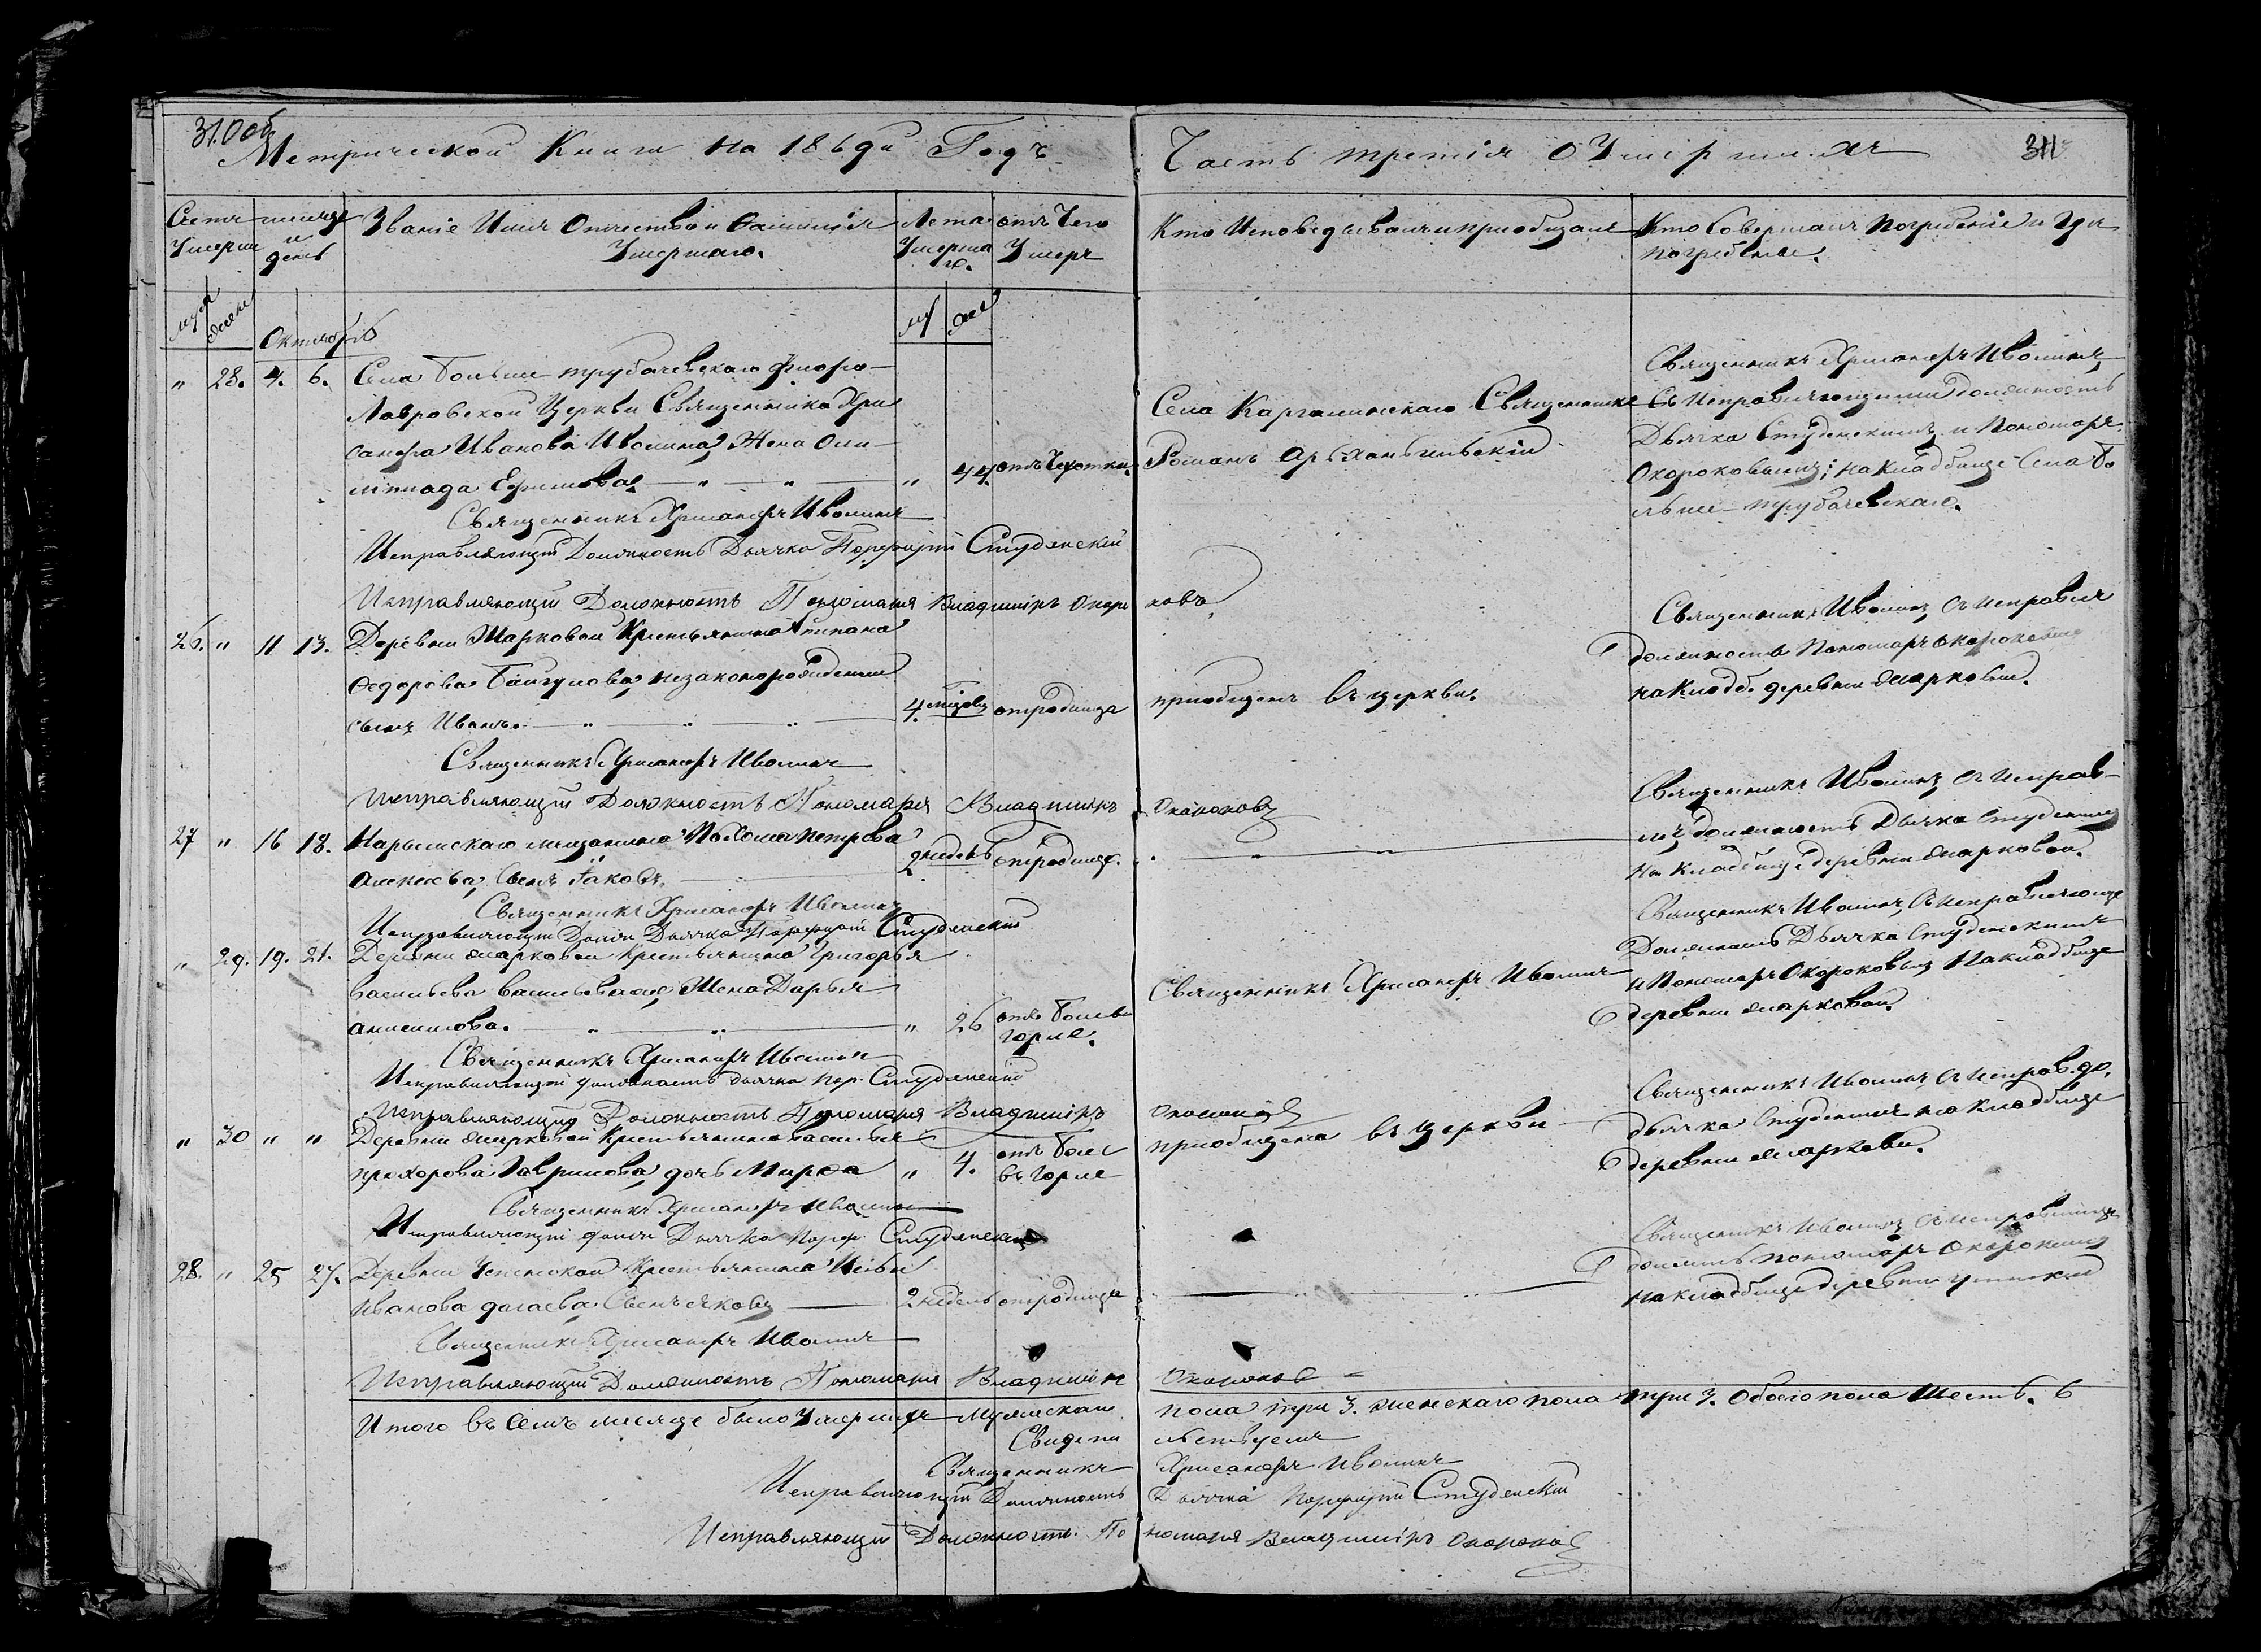 310 об
Метрической Книги на 1869й Годъ
Часть третія о Умершихъ
311
Счетъ Умерш
месяцъ и день
Званіе Имя Отчество и Фамилія Умершаго.
Лета Умерша го.
отъ Чего Умеръ
Кто Исповедывалъ и приобщалъ
Кто Совершалъ Погребеніе и Где погребены.
муж
жен
Октябрь
м
жен
" 28. 4. 6. Села Больше трубачевскаго Флоро-
Лавровской Церкви Священника Хри
санфа Иванова Ивомина Жена Оли-
мпиада Ефимова " 44. отъ Чехотки.
Села Каргалинскаго Священникъ
Романъ Архангельскій
Священникъ Хрисанфъ Ивоминъ
Съ Исправляющими должность
Дьячка Студенскимъ и Пономаря
Окороковымъ; на Кладбище Села Бо
льше-трубачевскаго.
Священникъ Хрисанфъ Ивоминъ
Исправляющій Должность Дьячка Порфирій Студенскій
Исправляющій Должность Пономаря Владиміръ Окоро ковъ
26. " 11 13. Деревни Марковой Крестьянина Степана
Федорова Байгулова, незаконорожденный
сынъ Иванъ. 4. месяц отродимца
приобщенъ въ церкви.
Священникъ Ивоминъ съ исправля
должность Пономаря Окороковымъ
на Кладб. деревни Марковой.
Священникъ Хрисанфъ Ивоминъ
Исправляющій Должность Пономаря Владиміръ Окороковъ
27 " 16 18. Нарымскаго мещанина Пахома Петрова
Алексеева, Сынъ Іаковъ. 2 недель отродимце.
Священникъ Ивоминъ съ исправ-
мъ должность Дьячка Студенским
на Кладбище деревни Марковой.
Священникъ Хрисанфъ Ивоминъ
Исправляющій Должн Дьячка Порфирій Студенскій
" 29. 19. 21. Деревни Марковой Крестьянина Григорья
Васильева Жена Дарья
Анисимова. " 26 отъ боли въ горле.
Священникъ Хрисанфъ Ивоминъ
Священникъ Ивоминъ, съ исправляюще
Должность Дьячка Студенскимъ
и Пономаря Окороковымъ на кладбище
деревни Марковой.
Священникъ Хрисанфъ Ивоминъ
Исправляющій должность дьячка Пор. Студенскій
Исправляющій Должность Пономаря Владиміръ Окороковъ
" 30 " " Деревни Марковой Крестьянина Василья
Прохорова Гаврилова, дочь Марфа " 4. отъ боли въ горле
приобщена въ церкви
Священникъ Ивоминъ съ исправ. до.
дьячка Студенским на кладбище
деревни Маркови.
Священникъ Хрисанфъ Ивоминъ
Исправляющій должн Дьячка Порф. Студенскій
28. " 25 27. Деревни Крестьянина Ильи
Иванова Сынъ Яковъ 2 недель отродимца
Священникъ Ивоминъ съ исправляющ
должность Пономаря Окороковым
на кладбище деревни
Священникъ Хрисанфъ Ивоминъ
Исправляющій Должность Пономаря Владиміръ Окороковъ
Итого въ семъ месяце было Умершихъ Мужескаго пола три 3. женскаго пола три 3. Обоего пола Шесть. 6
Свидетельствуемъ
Священникъ Хрисанфъ Ивоминъ
Исправляющій Должность Дьячка Порфирій Студенскій
Исправляющій Должность Пономаря Владиміръ Окороковъ